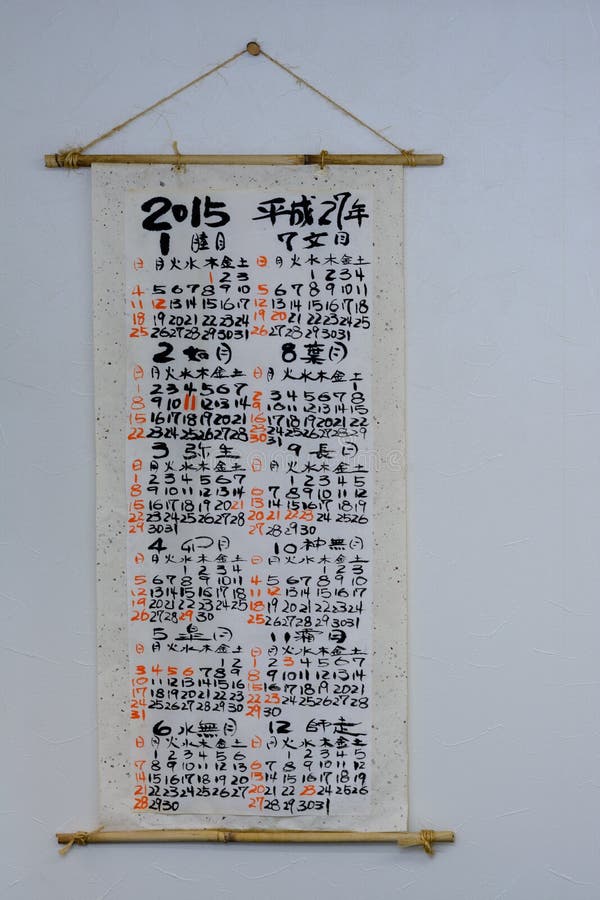 2015 平成27年
1 睦月
日月火水木金土
1 2 3
4 5 6 7 8 9 10
11 12 13 14 15 16 17
18 19 20 21 22 23 24
25 26 27 28 29 30 31
2 如月
日月火水木金土
1 2 3 4 5 6 7
8 9 10 11 12 13 14
15 16 17 18 19 20 21
22 23 24 25 26 27 28
3 弥生
日月火水木金土
1 2 3 4 5 6 7
8 9 10 11 12 13 14
15 16 17 18 19 20 21
22 23 24 25 26 27 28
29 30 31
4 卯月
日月火水木金土
1 2 3 4
5 6 7 8 9 10 11
12 13 14 15 16 17 18
19 20 21 22 23 24 25
26 27 28 29 30
5 皐月
日月火水木金土
1 2
3 4 5 6 7 8 9
10 11 12 13 14 15 16
17 18 19 20 21 22 23
24 25 26 27 28 29 30
31
6 水無月
日月火水木金土
1 2 3 4 5 6
7 8 9 10 11 12 13
14 15 16 17 18 19 20
21 22 23 24 25 26 27
28 29 30
7 文月
日月火水木金土
1 2 3 4
5 6 7 8 9 10 11
12 13 14 15 16 17 18
19 20 21 22 23 24 25
26 27 28 29 30 31
8 葉月
日月火水木金土
1
2 3 4 5 6 7 8
9 10 11 12 13 14 15
16 17 18 19 20 21 22
23 24 25 26 27 28 29
30 31
9 長月
日月火水木金土
1 2 3 4 5
6 7 8 9 10 11 12
13 14 15 16 17 18 19
20 21 22 23 24 25 26
27 28 29 30
10 神無月
日月火水木金土
1 2 3
4 5 6 7 8 9 10
11 12 13 14 15 16 17
18 19 20 21 22 23 24
25 26 27 28 29 30 31
11 霜月
日月火水木金土
1 2 3 4 5 6 7
8 9 10 11 12 13 14
15 16 17 18 19 20 21
22 23 24 25 26 27 28
29 30
12 師走
日月火水木金土
1 2 3 4 5
6 7 8 9 10 11 12
13 14 15 16 17 18 19
20 21 22 23 24 25 26
27 28 29 30 31